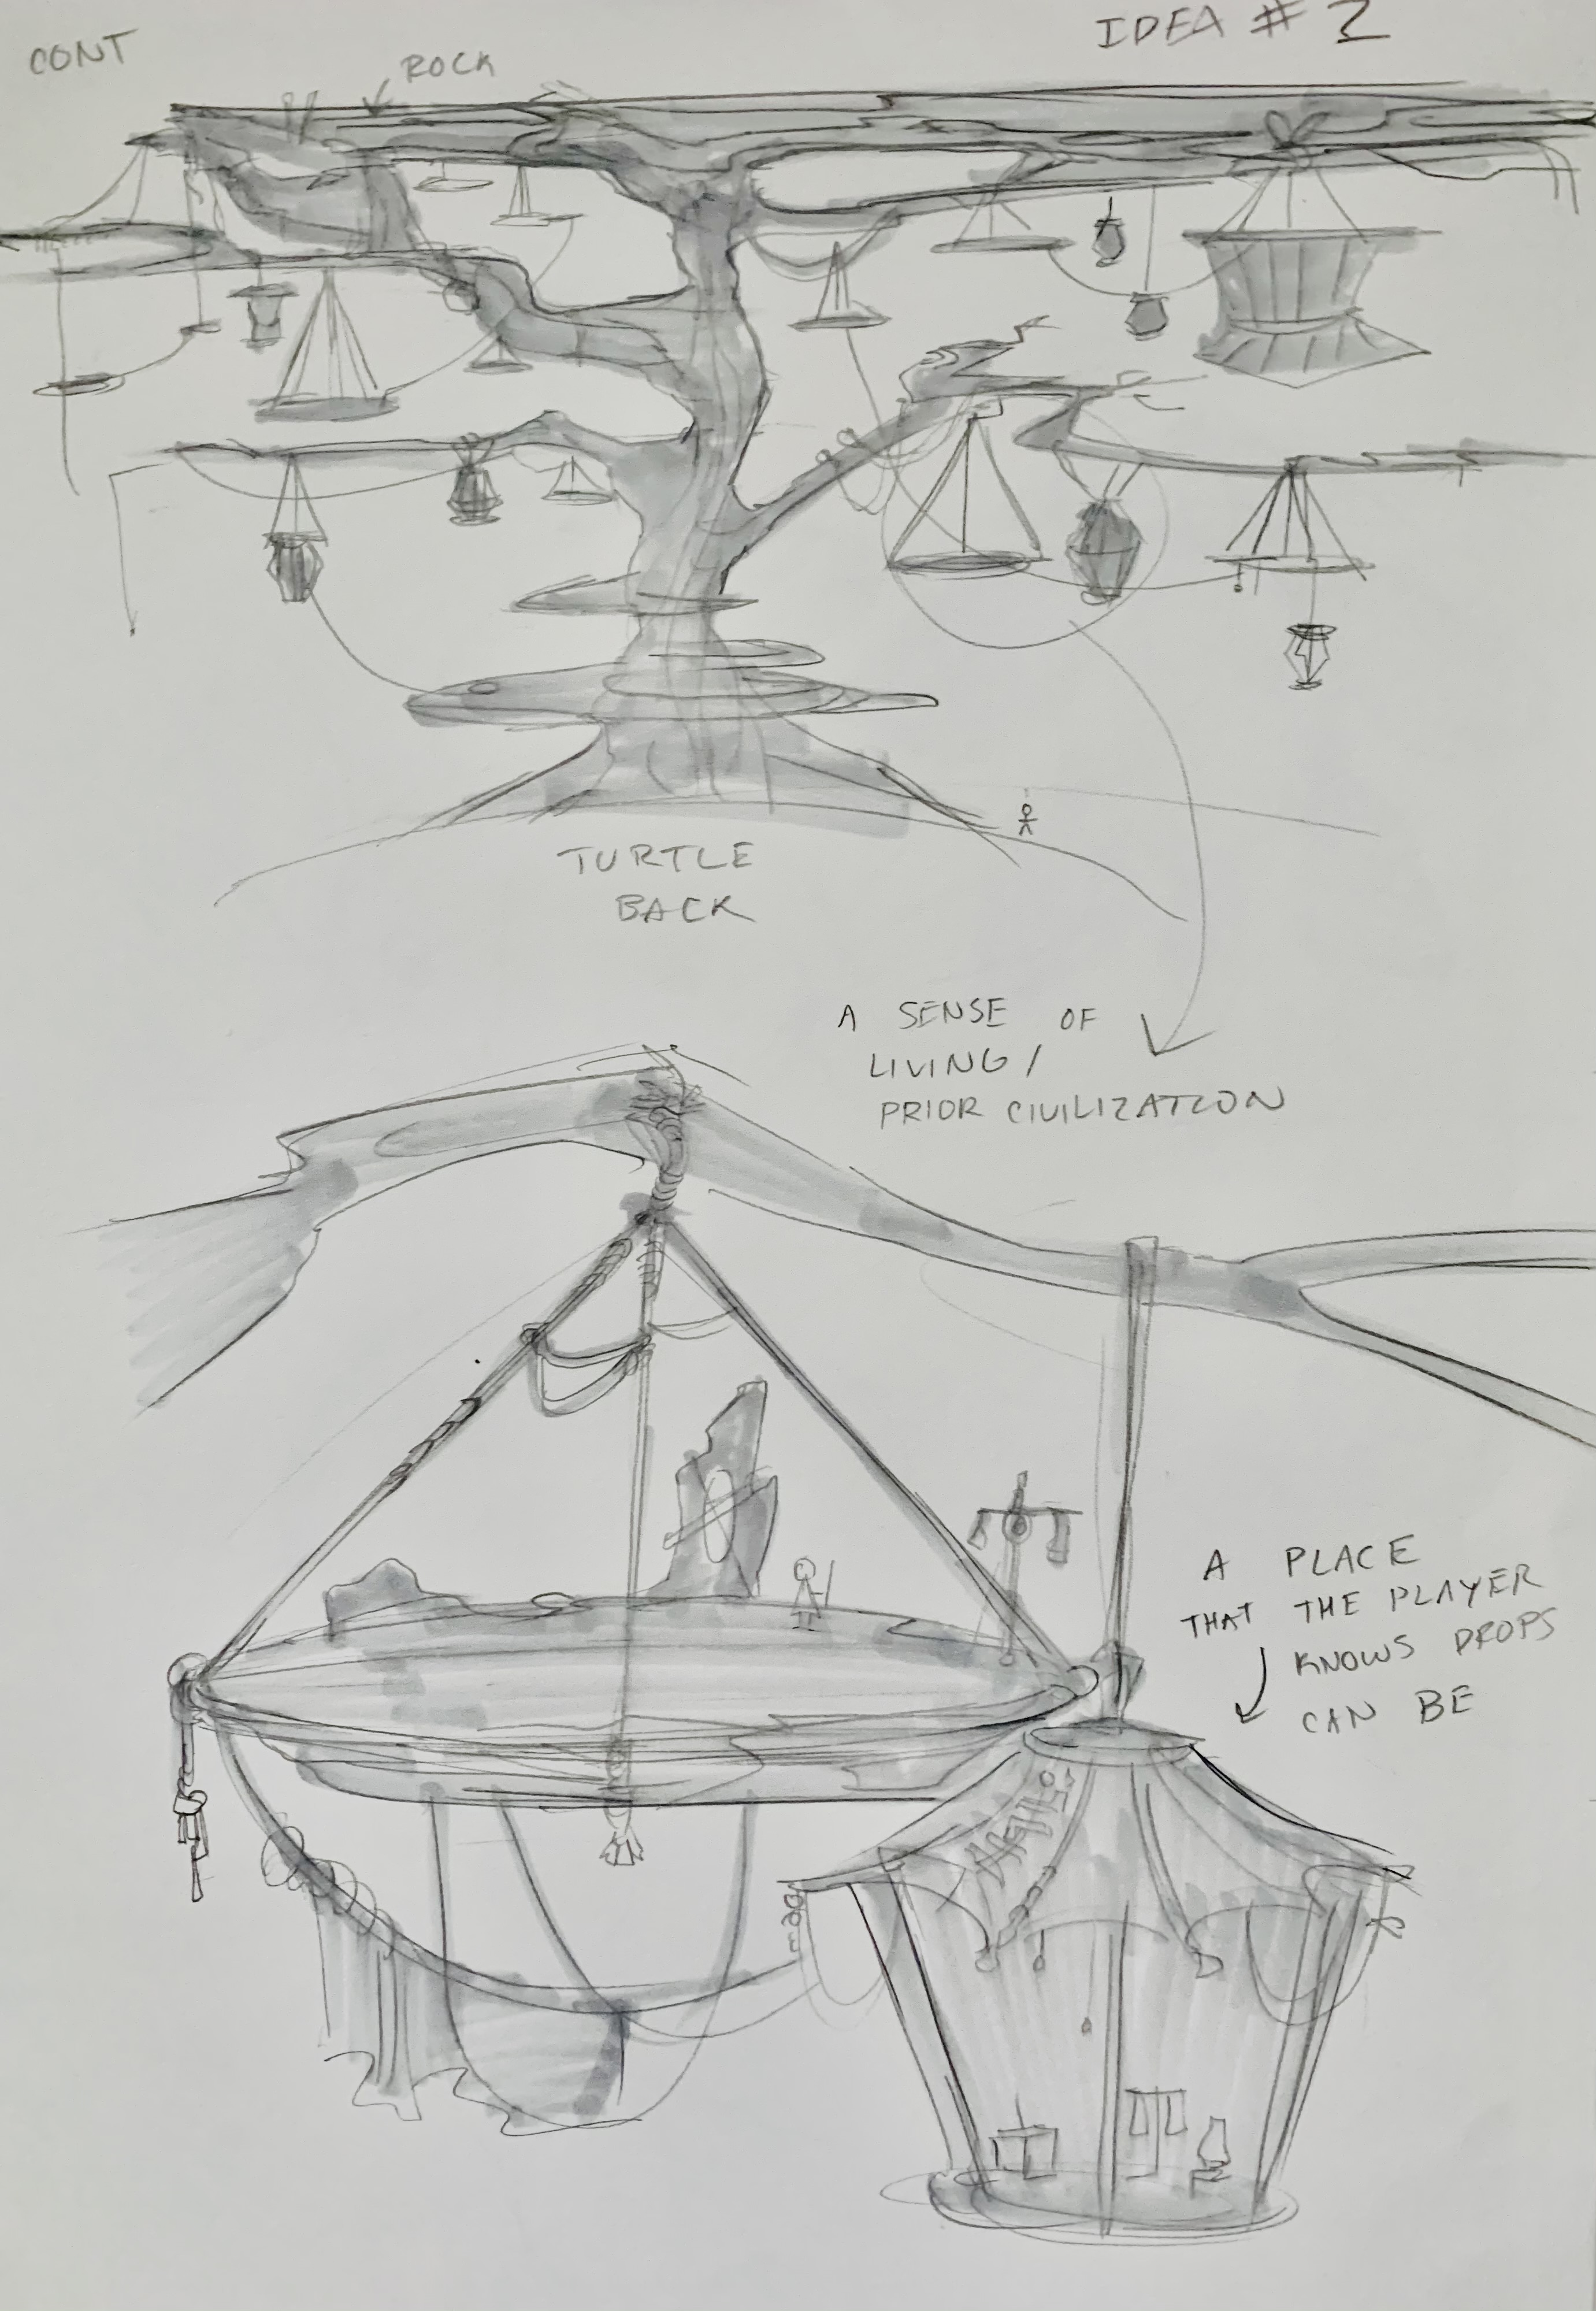 CONT
ROCK
IDEA # 2
TURTLE
BACK
A SENSE OF
LIVING/
PRIOR CIVILIZATION
A PLACE
THAT THE PLAYER
KNOWS DROPS
CAN BE